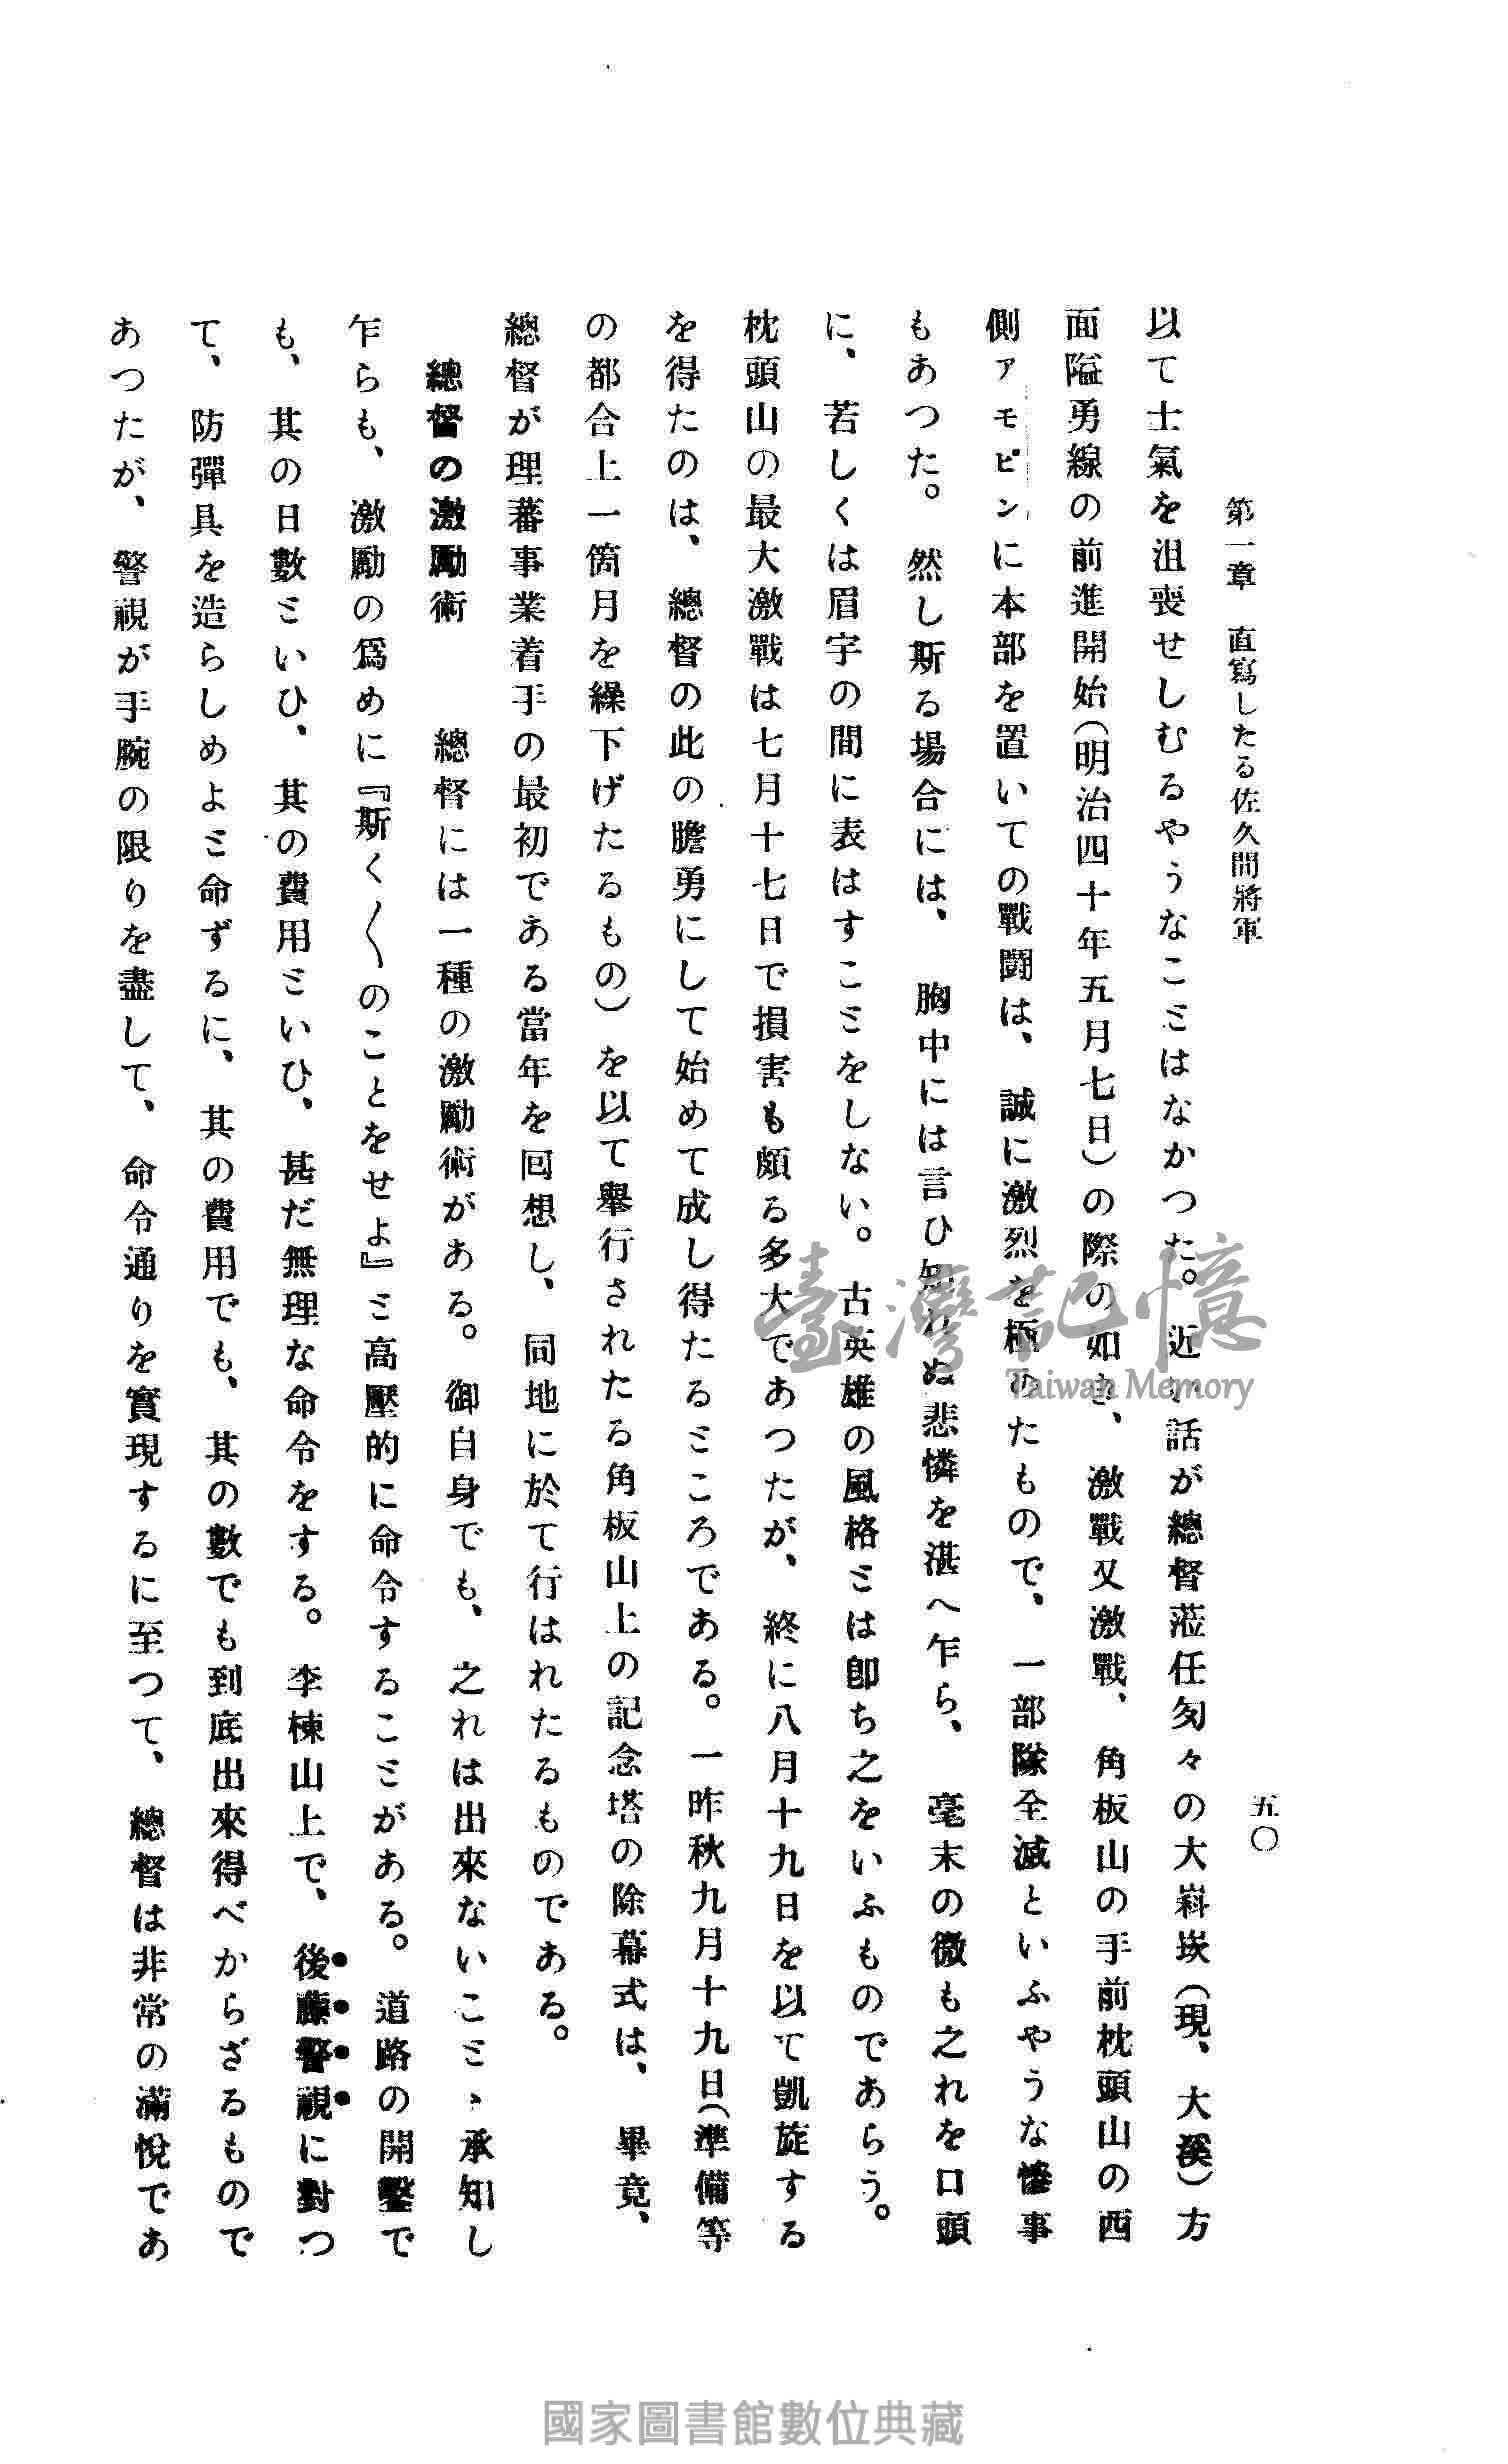 第一章　直寫したる佐久間將軍
五〇
以て士氣を沮喪せしむるやうなこミはなかつた。近い話が總督蒞任匆々の大嵙崁（現、大溪）方
面隘勇線の前進開始（明治四十年五月七日）の際の如き、激戰又激戰、角板山の手前枕頭山の西
側アモピンに本部を置いての戰鬪は、誠に激烈を極めたもので、一部隊全滅といふやうな慘事
もあつた。然し斯る場合には、胸中には言ひ知れぬ悲憐を湛へ乍ら、毫末の微も之れを口頭
に、若しくは眉宇の間に表はすこミをしない。古英雄の風格ミは卽ち之をいふものであらう。
枕頭山の最大激戰は七月十七日で損害も頗る多大であつたが、終に八月十九日を以て凱旋する
を得たのは、總督の此の膽勇にして始めて成し得たるミころである。一昨秋九月十九日（準備等
の都合上一箇月を繰下げたるもの）を以て擧行されたる角板山上の記念塔の除幕式は、畢竟、
總督が理蕃事業着手の最初である當年を回想し、同地に於て行はれたるものである。
總督の激勵術　總督には一種の激勵術がある。御自身でも、之れは出來ないこミ、承知し
乍らも、激勵の爲めに『斯く〱のことをせよ』ミ高壓的に命令するこミがある。道路の開鑿で
も、其の日數ミいひ、其の費用ミいひ、甚だ無理な命令をする。李棟山上で、後藤警視に對つ
て、防彈具を造らしめよミ命ずるに、其の費用でも、其の數でも到底出來得べからざるもので
あつたが、警視が手腕の限りを盡して、命令通りを實現するに至つて、總督は非常の滿悅であ
臺灣記憶
Taiwan Memory
國家圖書館數位典藏